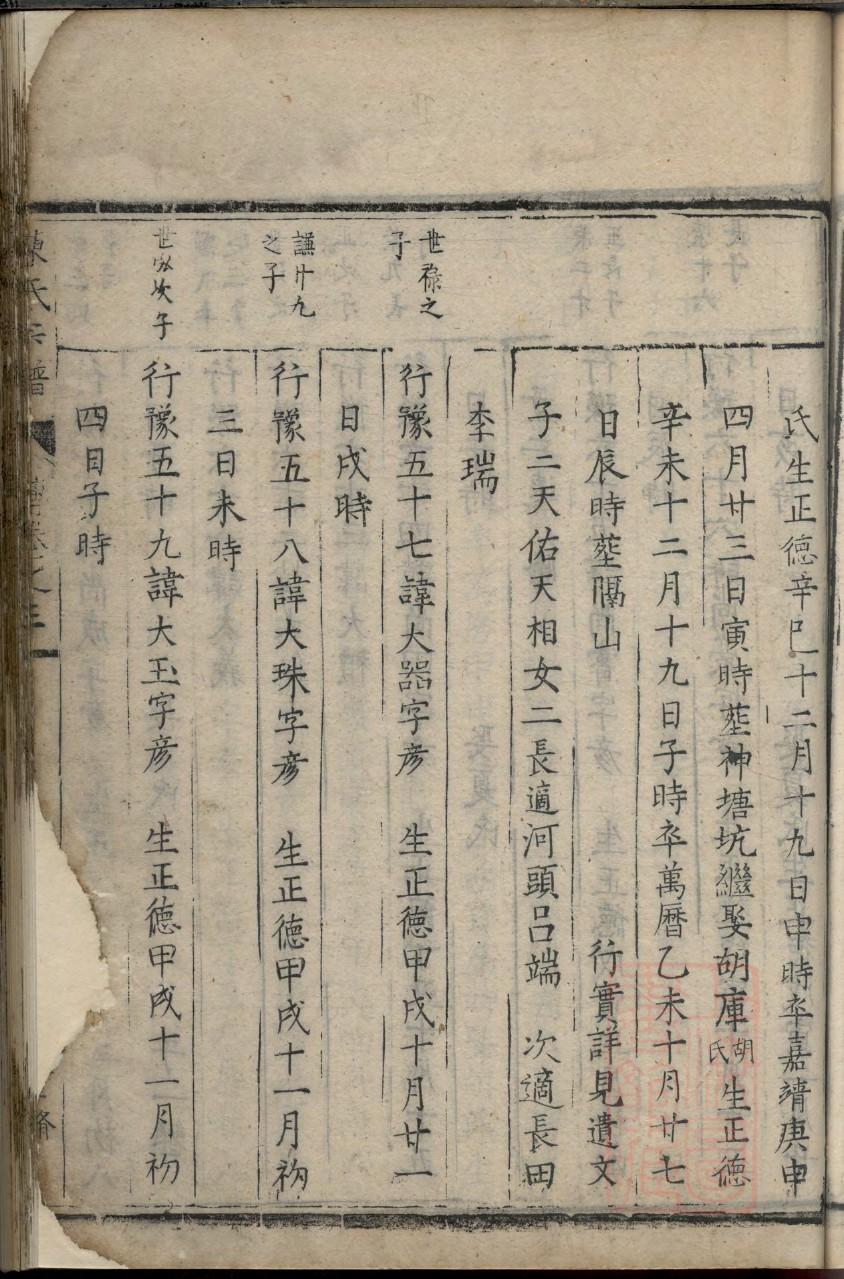 氏生正德辛巳十二月十九日申時卒嘉靖庚申
四月廿三日寅時塟神塘坑繼娶胡庫胡氏生正德
辛未十二月十九日子時卒萬曆乙未十月廿七
日辰時塟隔山 行實詳見遺文
子二天佑天相女二長適河頭呂端 次適長田
李瑞
世祿之子
行豫五十七諱大器字彦 生正德甲戌十月廿一
日戌時
謙廿九之子
行豫五十八諱大珠字彦 生正德甲戌十一月初
三日未時
世 次子
行豫五十九諱大玉字彦 生正德甲戌十一月初
四日子時
陳氏宗譜
卷之三